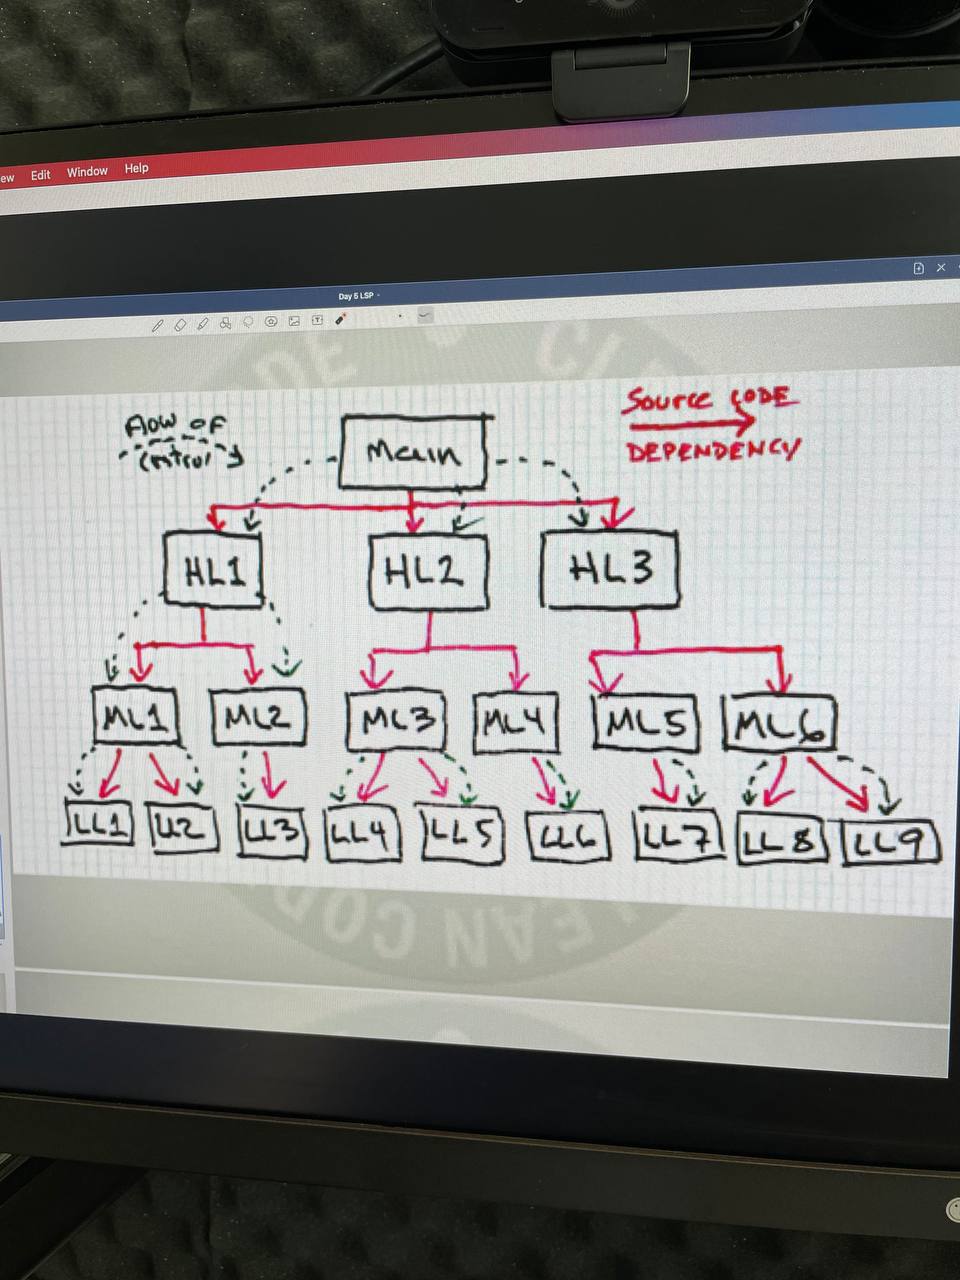 Edit Window Help
Day 5 LSP
flow of
control
Main
Source CODE
DEPENDENCY
HL1 HL2 HL3
ML1 ML2 ML3 ML4 ML5 ML6
LL1 LL2 LL3 LL4 LL5 LL6 LL7 LL8 LL9